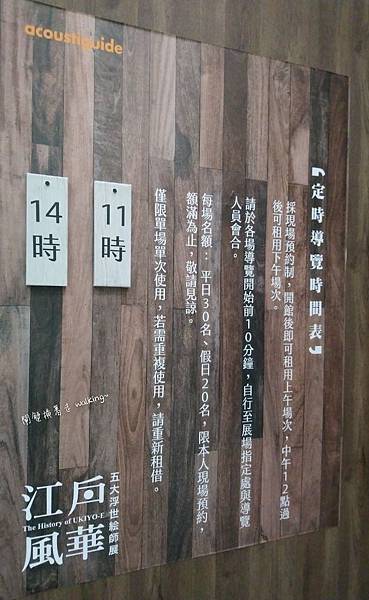 acoustiguide
【定時導覽時間表】
採現場預約制，開館後即可租用上午場次，中午12點過
後可租用下午場次。
請於各場導覽開始前10分鐘，自行至展場指定處與導覽
人員會合。
每場名額：平日30名、假日20名，限本人現場預約，
額滿為止，敬請見諒。
僅限單場單次使用，若需重複使用，請重新租借。
11時
14時
五大浮世絵師展
江戶
The History of UKIYO-E
風華
walking~